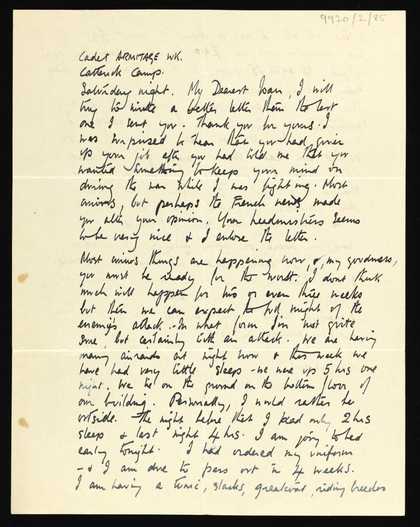 9920/2/85
Cadet ARMITAGE WK.
Catterick Camp.
Saturday night. My Dearest Joan, I will
try to write a better letter than the last
one I sent you. Thank you for yours. I
was surprised to hear that you had given
up your job after you had told me that you
wanted something to keep your mind on
during the war while I was fighting. Most
curious, but perhaps the French news made
you alter your opinion. Your headmistress seems
to be very nice & I enclose the letter.
Most curious things are happening now &, my goodness,
you must be ready for the worst. I don't think
much will happen for two or even three weeks
but then we can expect the full might of the
enemy's attack. In what form I'm not quite
sure, but certainly with an attack. We are having
many air raids at night now & this week we
have had very little sleep - we were up 5 hrs one
night. We lie on the ground on the bottom floor of
our building. Personally, I would rather be
outside. The night before that I had only 2 hrs
sleep & last night 4 hrs. I am going to bed
early tonight. I had ordered my uniform
- & I am due to pass out in 4 weeks.
I am having a tunic, slacks, greatcoat, riding breeches